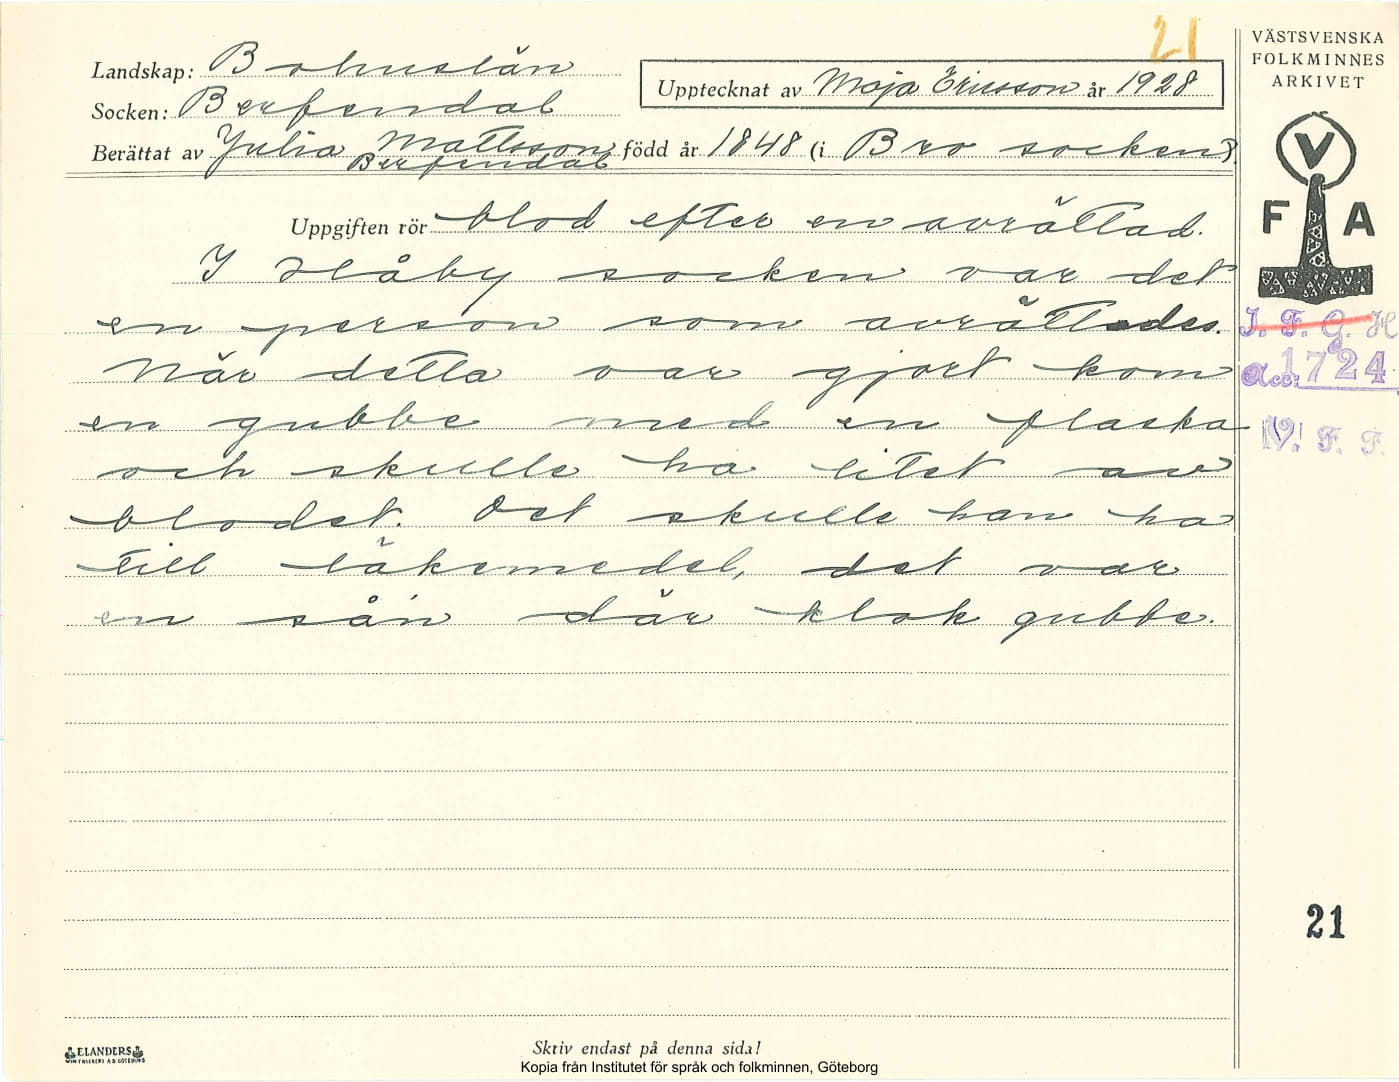 21
VÄSTSVENSKA
FOLKMINNES
ARKIVET
Landskap: Bohuslän
Upptecknat av Maja Ericsson år 1928
Socken: Berfendal
Berättat av Julia Mattsson född år 1848 (i Bro socken).
Berfendal
V
F A
Uppgiften rör blod efter en avrättad.
I Håby socken var det
en person som avrättades.
När detta var gjort kom
en gubbe med en flaska
och skulle ha litet av
blodet. Det skulle han ha
till läkemedel, det var
en sån där klok gubbe.
I. F. G. H
Acc: 1724
V. F. F.
21
ELANDERS
Skriv endast på denna sida!
Kopia från Institutet för språk och folkminnen, Göteborg